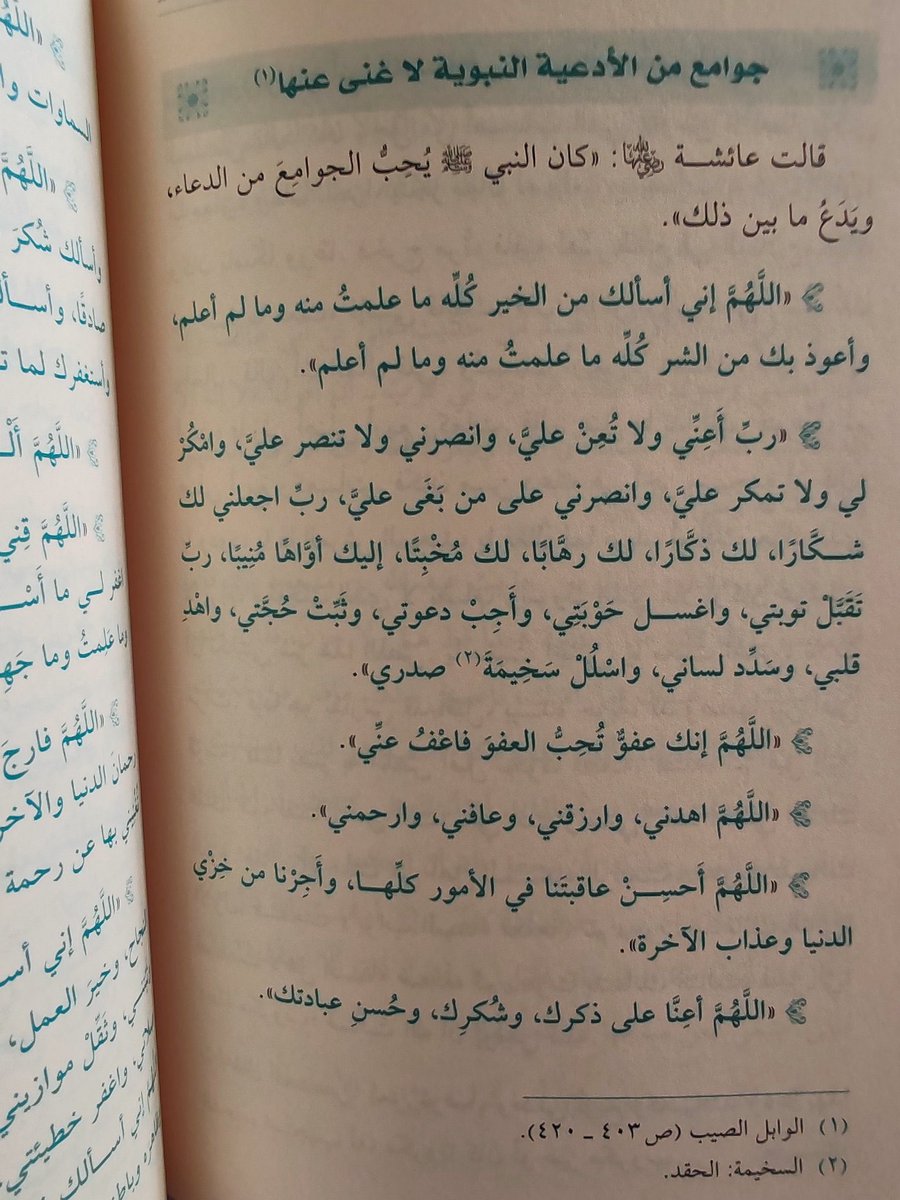 جوامع من الأدعية النبوية لا غنى عنها(١)
قالت عائشة رضي الله عنها: «كان النبي ﷺ يُحِبُّ الجوامِعَ من الدعاء،
ويَدَعُ ما بين ذلك».
«اللَّهُمَّ إني أسألك من الخير كُلِّه ما علمتُ منه وما لم أعلم،
وأعوذ بك من الشر كُلِّه ما علمتُ منه وما لم أعلم».
«ربِّ أَعِنِّي ولا تُعِنْ عليَّ، وانصرني ولا تنصر عليَّ، وامْكُرْ
لي ولا تمكر عليَّ، وانصرني على من بَغَى عليَّ، ربِّ اجعلني لك
شكَّارًا، لك ذكَّارًا، لك رهَّابًا، لك مُخْبِتًا، إليك أوَّاهًا مُنِيبًا، ربِّ
تَقَبَّلْ توبتي، واغسل حَوْبَتِي، وأَجِبْ دعوتي، وثَبِّتْ حُجَّتي، واهْدِ
قلبي، وسَدِّد لساني، واسْلُلْ سَخِيمَةَ(٢) صدري».
«اللَّهُمَّ إنك عفوٌّ تُحِبُّ العفوَ فاعْفُ عنِّي».
«اللَّهُمَّ اهدني، وارزقني، وعافني، وارحمني».
«اللَّهُمَّ أَحسِنْ عاقبتَنا في الأمور كلِّها، وأَجِرْنا من خِزْيِ
الدنيا وعذاب الآخرة».
«اللَّهُمَّ أعِنَّا على ذكرك، وشُكرِك، وحُسنِ عبادتك».
(١) الوابل الصيب (ص ٤٠٣ ـ ٤٢٠).
(٢) السخيمة: الحقد.
السماوات
«اللَّهُمَّ
وأسألك شُكرَ
صادقًا،
وأستغفرك لما
«اللَّهُمَّ
«اللَّهُمَّ قِني
اغفر لي ما
وما عَلمتُ وما
«اللَّهُمَّ فارجَ
رحمانَ الدنيا
بها عن رحمة
«اللَّهُمَّ إني
وخير العمل،
وثَقِّلْ موازيني
واغفر خطيئتي